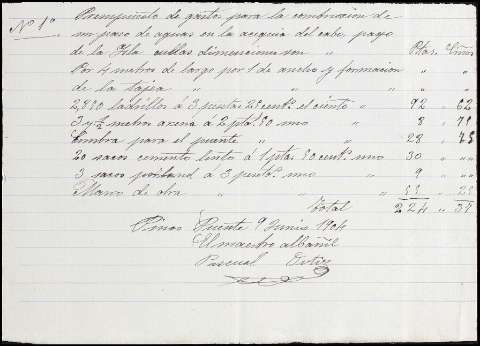 Nº 1º Presupuesto de gastos para la construccion de
un paso de aguas en la acequia del cabo, pago
de la Isla cullas dimenciones son " Ptas. Ctmos
Por 4 metros de largo por 1 de ancho y formacion " "
de la tageа " " " " "
2,880 ladrillo á 3 pesetas 2 centº el ciento " 92 " 62
3 y ½ metros arena á 2 ptas 50 uno " 8 " 75
Cimbra para el puente " " 28 " 75
20 sacos cemento lento á 1 pta 50 centº uno 30 " ""
3 sacos portland á 3 pentº uno " 9 " ""
Mano de obra " " " 55 " 25
Total 224 " 37
Pinos Puente 9 Junio 1904
El maestro albañil
Pascual Ortiz